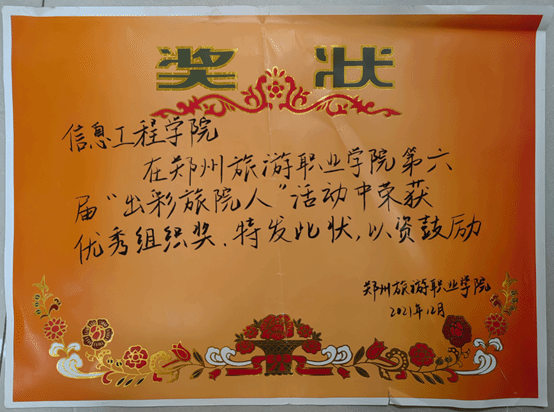 奖状
信息工程学院
在郑州旅游职业学院第六
届“出彩旅院人”活动中荣获
优秀组织奖、特发此状,以资鼓励
郑州旅游职业学院
2021年12月